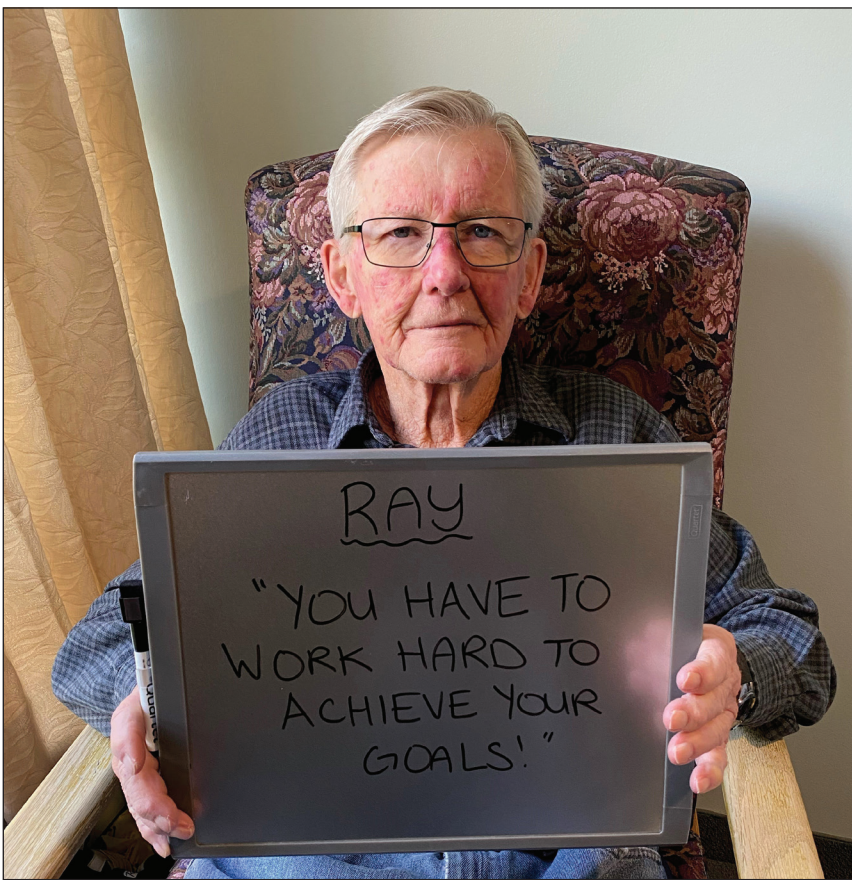 RAY
"YOU HAVE TO
WORK HARD TO
ACHIEVE YOUR
GOALS!"